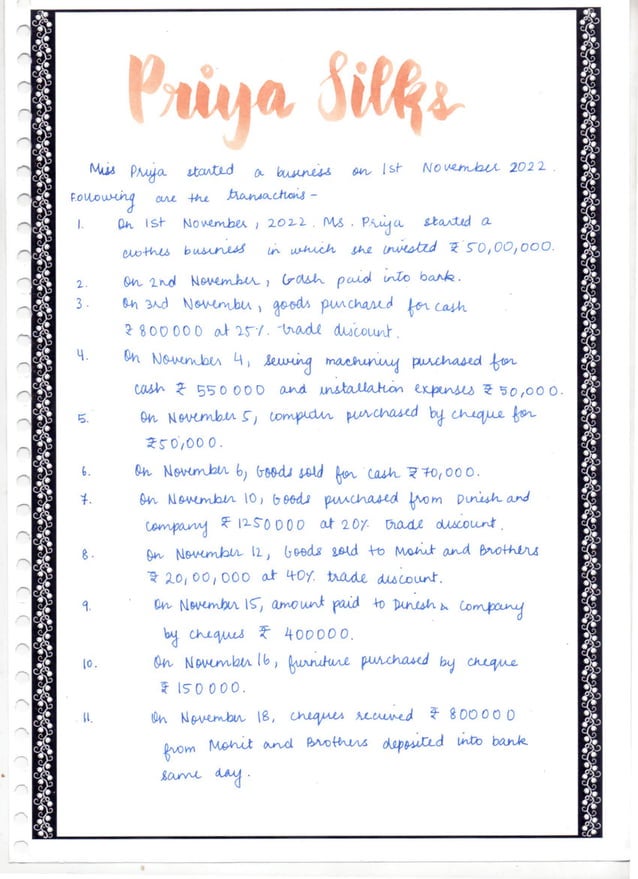 Priya Silks
Miss Priya started a business on 1st November 2022.
Following are the transactions -
1. On 1st November, 2022. Ms. Priya started a
clothes business in which she invested ₹ 50,00,000.
2. On 2nd November, Cash paid into bank.
3. On 3rd November, goods purchased for cash
₹ 800000 at 25% trade discount.
4. On November 4, sewing machinery purchased for
cash ₹ 550000 and installation expenses ₹ 50,000.
5. On November 5, computer purchased by cheque for
₹50,000.
6. On November 6, Goods sold for cash ₹70,000.
7. On November 10, Goods purchased from Dinesh and
company ₹ 1250000 at 20% trade discount.
8. On November 12, Goods sold to Mohit and Brothers
₹ 20,00,000 at 40% trade discount.
9. On November 15, amount paid to Dinesh & Company
by cheques ₹ 400000.
10. On November 16, furniture purchased by cheque
₹ 150000.
11. On November 18, cheques received ₹ 800000
from Mohit and Brothers deposited into bank
same day.